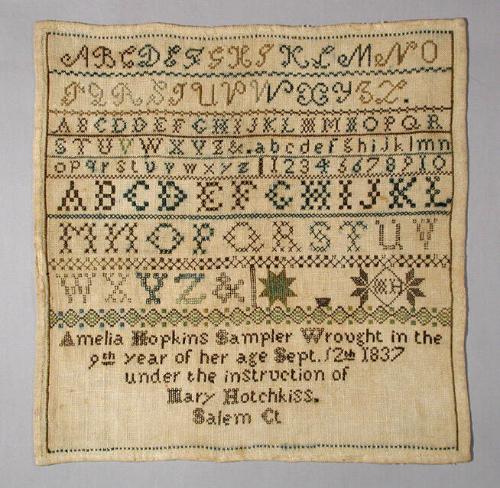 A B C D E F G H I K L M N O
P Q R S T U V W X Y Z.
A B C D D E F G H I J K L M N O P Q R
S T U V W X Y Z &. a b c d e f g h i j k l m n
o p q r s t u v w x y z 1 2 3 4 5 6 7 8 9 10
A B C D E F G H I J K L
M N O P Q R S T U V
W X Y Z & MH
Amelia Hopkins Sampler Wrought in the
9th year of her age Sept. 12th 1837
under the instruction of
Mary Hotchkiss.
Salem Ct